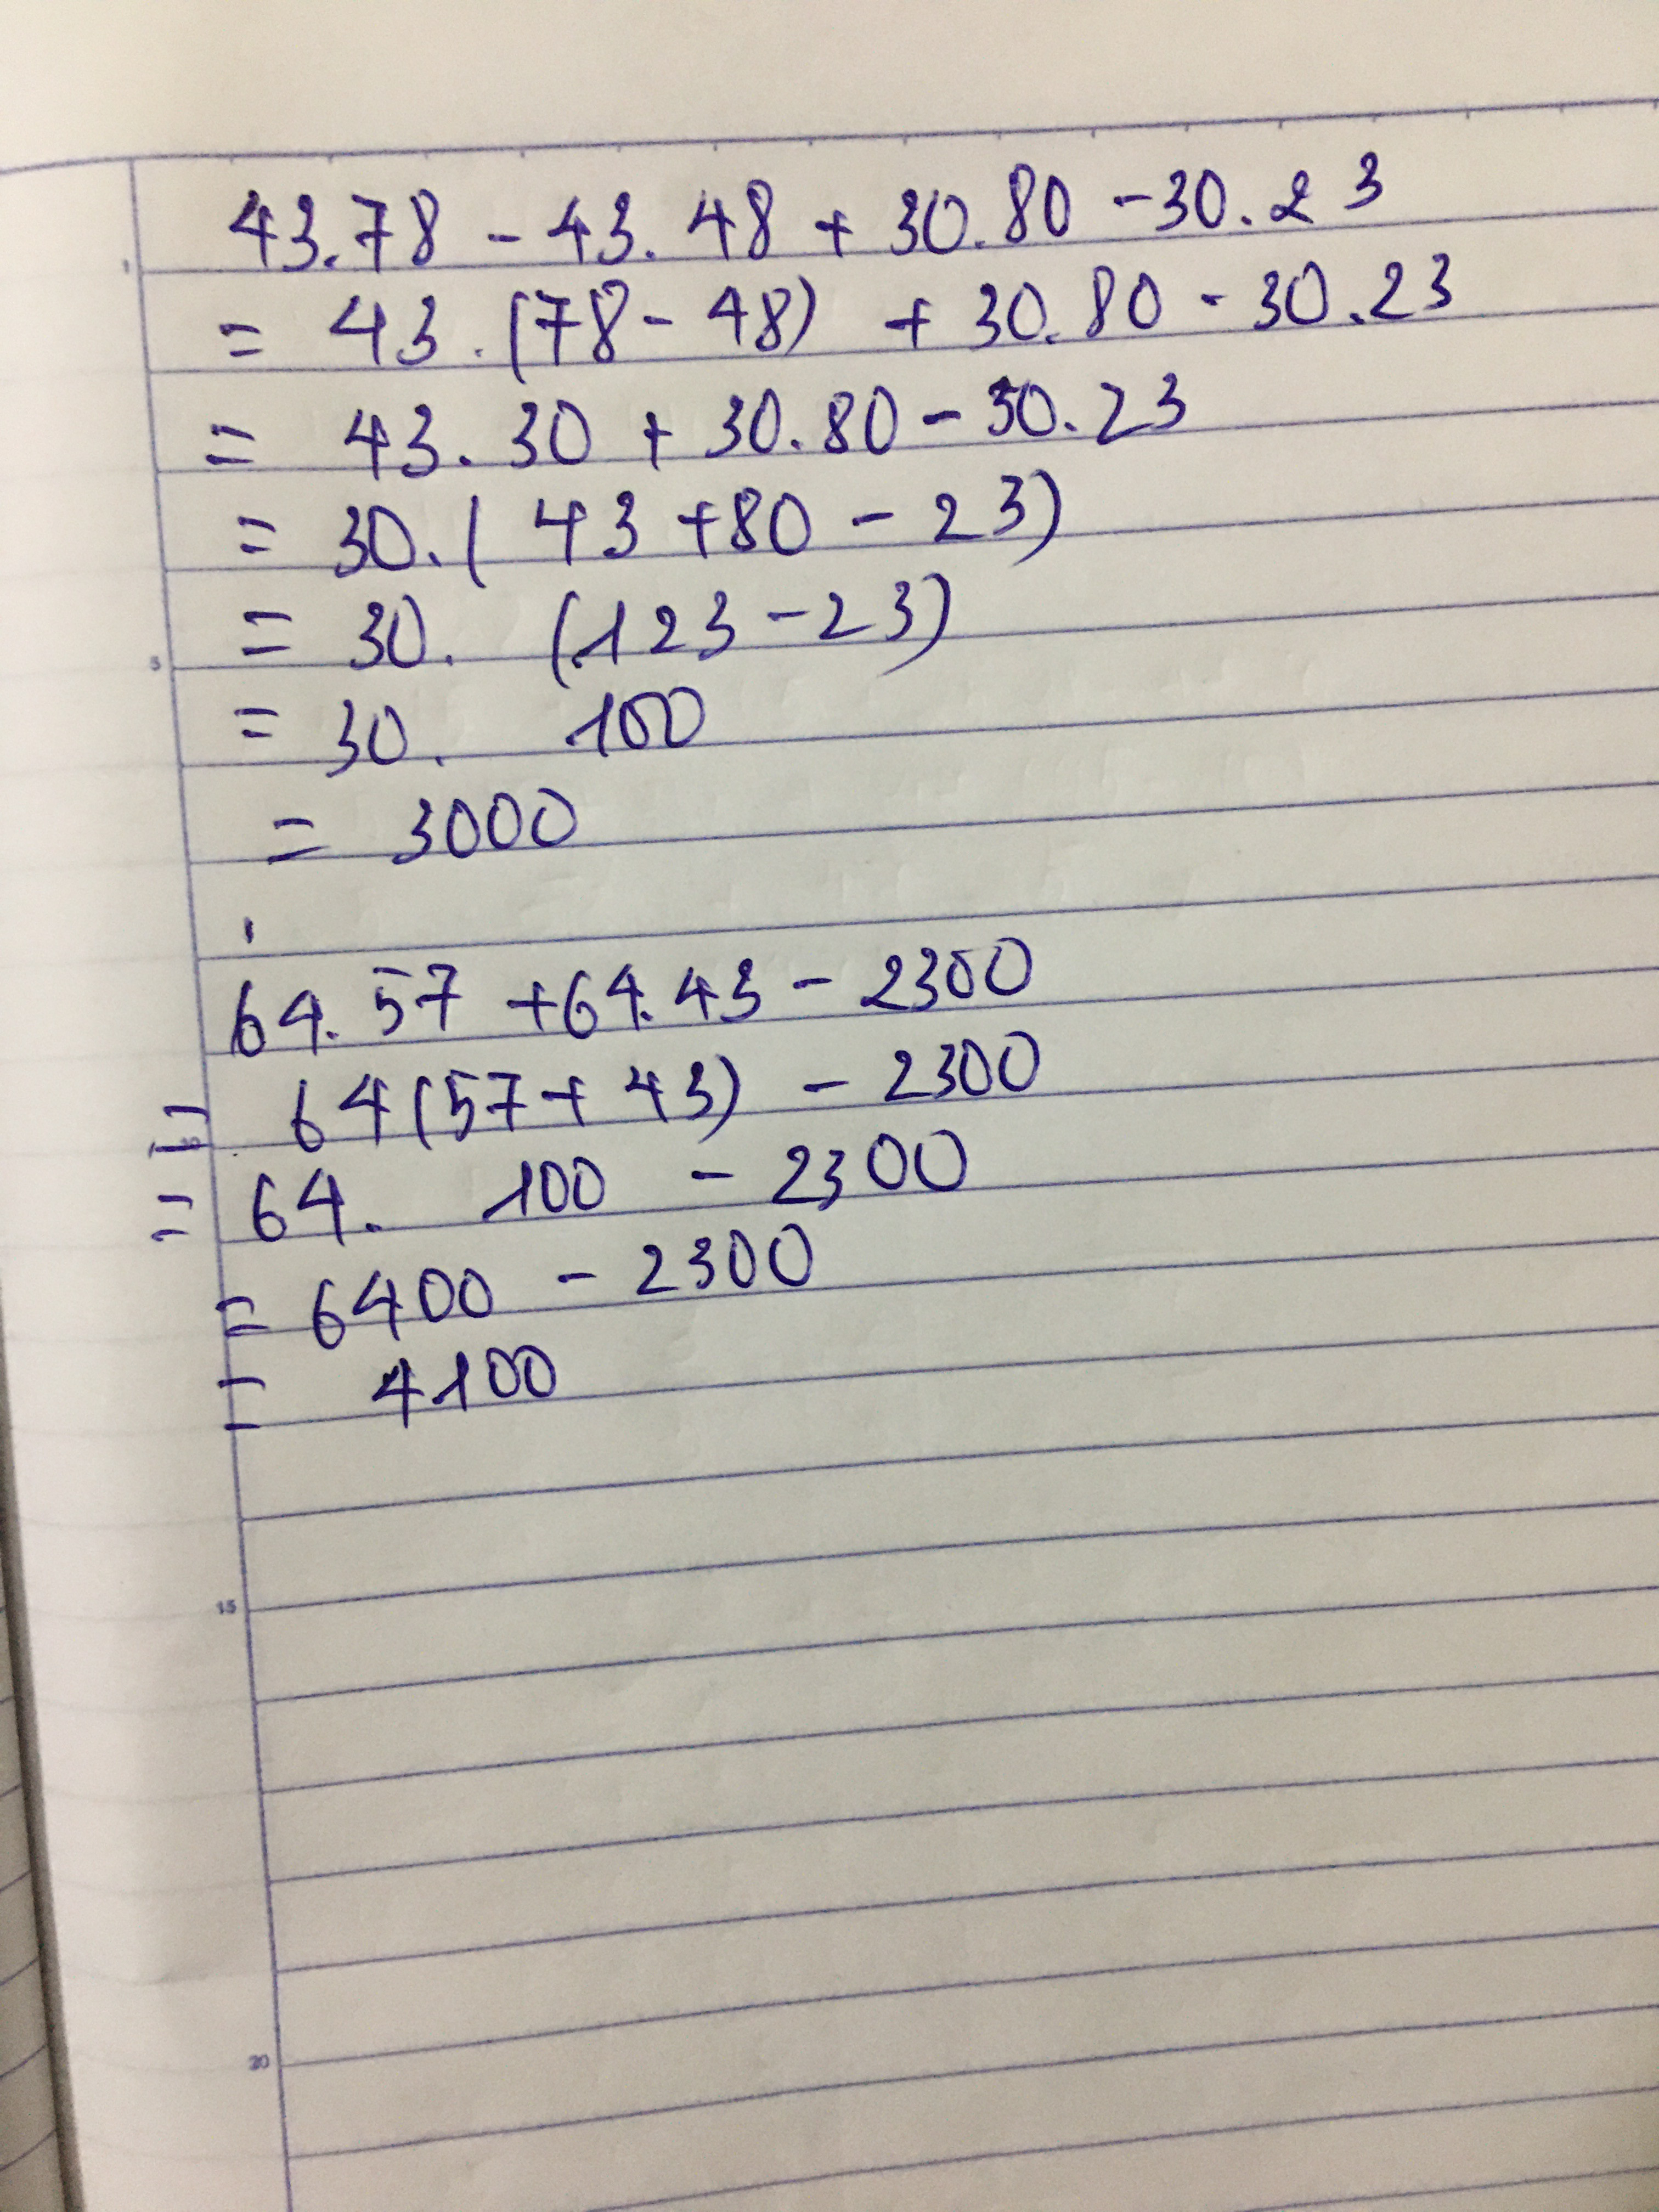 43.78 - 43.48 + 30.80 - 30.23
= 43.(78 - 48) + 30.80 - 30.23
= 43.30 + 30.80 - 30.23
= 30.(43 + 80 - 23)
= 30. (123 - 23)
= 30. 100
= 3000
64.57 + 64.43 - 2300
= 64(57 + 43) - 2300
= 64. 100 - 2300
= 6400 - 2300
= 4100
1
5
10
15
20